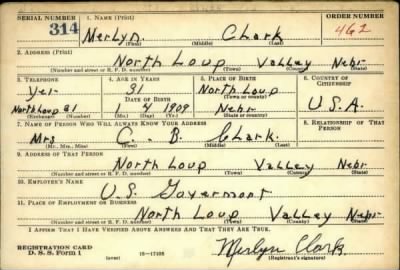 SERIAL NUMBER 1. NAME (Print) ORDER NUMBER
314 Merlyn Clark 462
(First) (Middle) (Last)
2. ADDRESS (Print)
North Loup Valley Nebr
(Number and street or R. F. D. number) (Town) (County) (State)
3. TELEPHONE 4. AGE IN YEARS 5. PLACE OF BIRTH 6. COUNTRY OF CITIZENSHIP
Yes 31 North Loup
DATE OF BIRTH (Town or county)
North Loup 21 1 4 1909 Nebr U.S.A.
(Exchange) (Number) (Mo.) (Day) (Yr.) (State or country)
7. NAME OF PERSON WHO WILL ALWAYS KNOW YOUR ADDRESS 8. RELATIONSHIP OF THAT PERSON
Mrs C. B. Clark
(Mr., Mrs., Miss) (First) (Middle) (Last)
9. ADDRESS OF THAT PERSON
North Loup Valley Nebr
(Number and street or R. F. D. number) (Town) (County) (State)
10. EMPLOYER'S NAME
U.S. Goverment
11. PLACE OF EMPLOYMENT OR BUSINESS
North Loup Valley Nebr
(Number and street or R. F. D. number) (Town) (County) (State)
I AFFIRM THAT I HAVE VERIFIED ABOVE ANSWERS AND THAT THEY ARE TRUE.
REGISTRATION CARD
D. S. S. Form 1 (over) 16-17105 Merlyn Clark
(Registrant's signature)